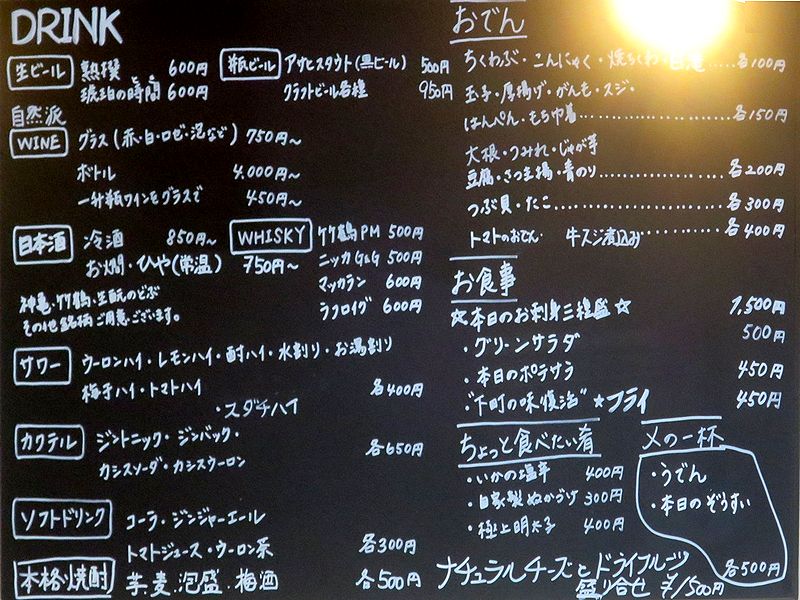 DRINK
生ビール 熱撰 600円
琥珀の時間 600円
瓶ビール アサヒスタウト(黒ビール) 500円
クラフトビール各種 950円
自然派
WINE グラス(赤・白・ロゼ・泡など) 750円~
ボトル 4,000円~
一升瓶ワインをグラスで 450円~
日本酒 冷酒 850円~
お燗・ひや(常温) 750円~
神亀、竹鶴、生酛のどぶ
その他銘柄ご用意ございます。
WHISKY 竹鶴PM 500円
ニッカG&G 500円
マッカラン 600円
ラフロイグ 600円
サワー ウーロンハイ・レモンハイ・酎ハイ・水割り・お湯割り
梅干ハイ・トマトハイ 各400円
・スダチハイ
カクテル ジントニック・ジンバック・
カシスソーダ・カシスウーロン 各650円
ソフトドリンク コーラ・ジンジャーエール
トマトジュース・ウーロン茶 各300円
本格焼酎 芋、麦、泡盛、梅酒 各500円
おでん
ちくわぶ・こんにゃく・焼ちくわ・白滝.....各100円
玉子・厚揚げ・がんも・スジ・
はんぺん・もち巾着..................各150円
大根・つみれ・じゃが芋
豆腐・さつま揚・青のり..................各200円
つぶ貝・たこ..................各300円
トマトのおでん 牛スジ煮込み..........各400円
お食事
☆本日のお刺身三種盛☆ 1,500円
・グリーンサラダ 500円
・本日のポテサラ 450円
・"下町の味復活"★フライ 450円
ちょっと食べたい肴
・いかの塩辛 400円
・自家製ぬかづけ 300円
・極上明太子 400円
〆の一杯
・うどん
・本日のぞうすい
各500円
ナチュラルチーズとドライフルーツ
盛り合せ ¥1,500円